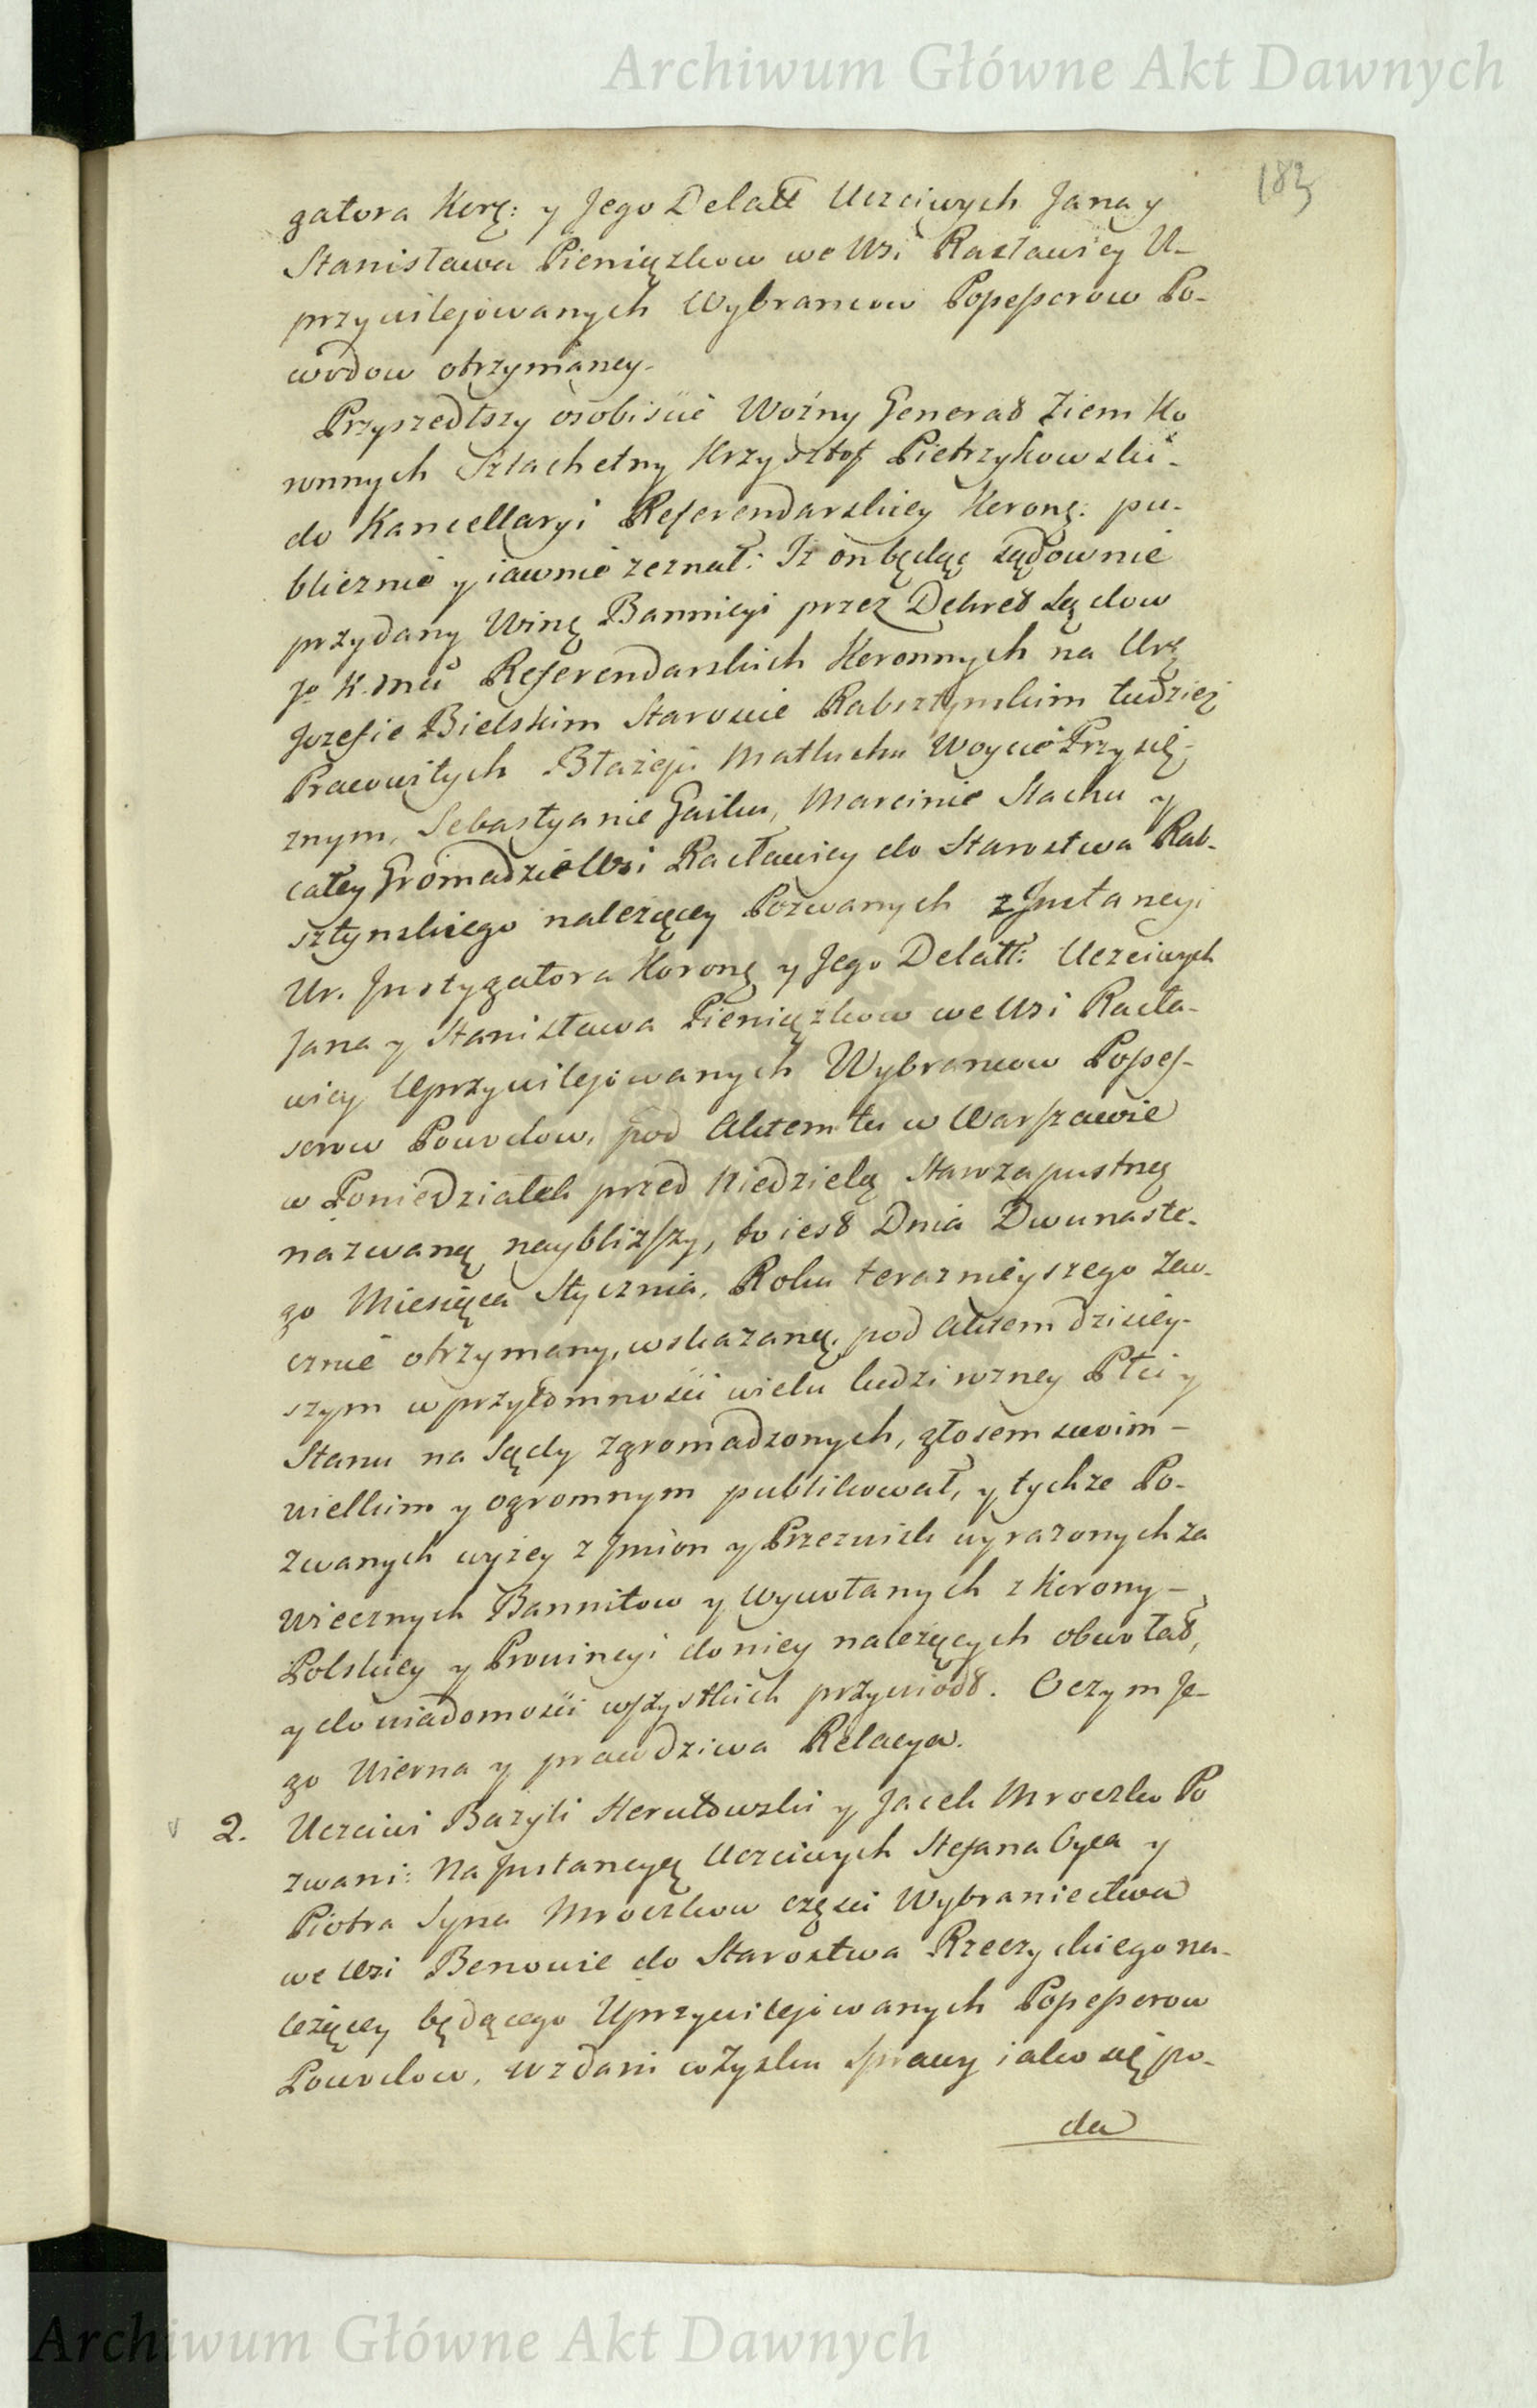 Archiwum Główne Akt Dawnych
183
gatora Korę: y Jego Delatt Uczciwych Jana y
Stanisława Pieniązkow we Wsi Racławicy U-
przywilejowanych Wybrancow Possessorow Po-
wodow otrzymaney.
Przyszedłszy osobiście Woźny Generał Ziem Ko
ronnych Szlachetny Krzysztof Pietrzykowski -
do Kancellaryi Referendarskiey Koronę: pu-
blicznie y iawnie zeznał: Iz on będąc sądownie
przydany Winę Bannicyi przez Dekret Sądow
Jo K. Mci Referendarskich Koronnych na Urę
Jozefie Bielskim Staroscie Rabsztynskim tudziez
Pracowitych Błażeju Matluchu Woycie Przysię-
znym, Sebastyanie Gaiku, Marcinie Stachu y
całey Gromadzie Wsi Racławicy do Starostwa Rab-
sztynskiego nalezącey Pozwanych z Instancyi
Ur. Instygatora Koronę y Jego Delatt: Uczciwych
Jana y Stanisława Pieniązkow we Wsi Racła-
wicy Uprzywilejowanych Wybrancow Posses-
sorow Powodow, pod Aktem tu w Warszawie
w Poniedziałek przed Niedzielą Starozapustną
nazwaną naybliższy, to iest Dnia Dwunaste-
go Miesiąca Stycznia, Roku teraznieyszego Zao-
cznie otrzymany, wskazaną, pod Aktem dzisiey-
szym w przytomności wielu ludzi rozney Płci y
Stanu na Sądy zgromadzonych, głosem swoim -
wielkim y ogromnym publikował, y tychze Po-
zwanych wyzey z Imion y Przezwisk wyrazonych za
wiecznych Bannitow y Wywołanych z Korony -
Polskiey y Prowincyi do niey nalezących obwołał,
y do wiadomości wszystkich przywiodł. O czym Je-
go Wierna y prawdziwa Relacya.
2. Uczciwi Bazyli Skrutowski y Jacek Mroczko Po
zwani: Na Instancyą Uczciwych Stefana Oyca y
Piotra Syna Mroczkow części Wybraniectwa
we Wsi Benowie do Starostwa Rzeczyckiego na-
leżącey będącego Uprzywilejowanych Possessorow
Powodow, wzdani w Zysku Sprawy iako się po-
da
Archiwum Główne Akt Dawnych